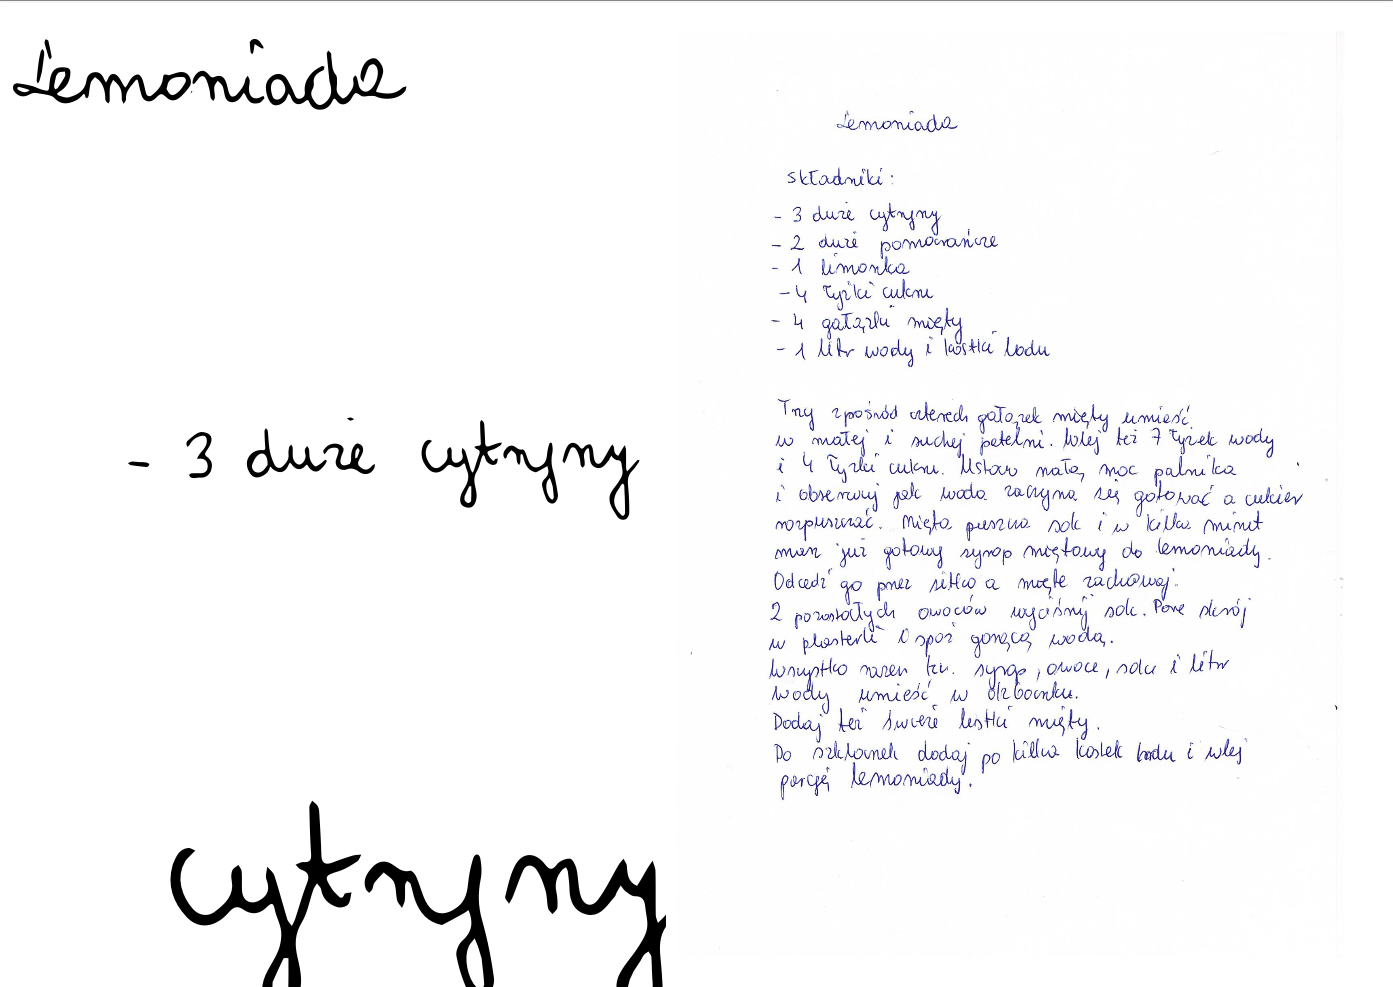 Lemoniada
- 3 duże cytryny
cytryny
Lemoniada
składniki:
- 3 duże cytryny
- 2 duże pomarańcze
- 1 limonka
- 4 łyżki cukru
- 4 gałązki mięty
- 1 litr wody i kostki lodu
Trzy spośród czterech gałązek mięty umieść
w małej i suchej patelni. Wlej też 7 łyżek wody
i 4 łyżki cukru. Ustaw małą moc palnika
i obserwuj jak woda zaczyna się gotować a cukier
rozpuszczać. Mięta puszcza sok i w kilka minut
masz już gotowy syrop miętowy do lemoniady.
Odcedź go przez sitko a miętę zachowaj.
Z pozostałych owoców wyciśnij sok. Parę skrój
w plasterki i sparz gorącą wodą.
Wszystko razem tzn. syrop, owoce, soku i litr
wody umieść w dzbanku.
Dodaj też świeże listki mięty.
Do szklanek dodaj po kilka kostek lodu i wlej
porcję lemoniady.